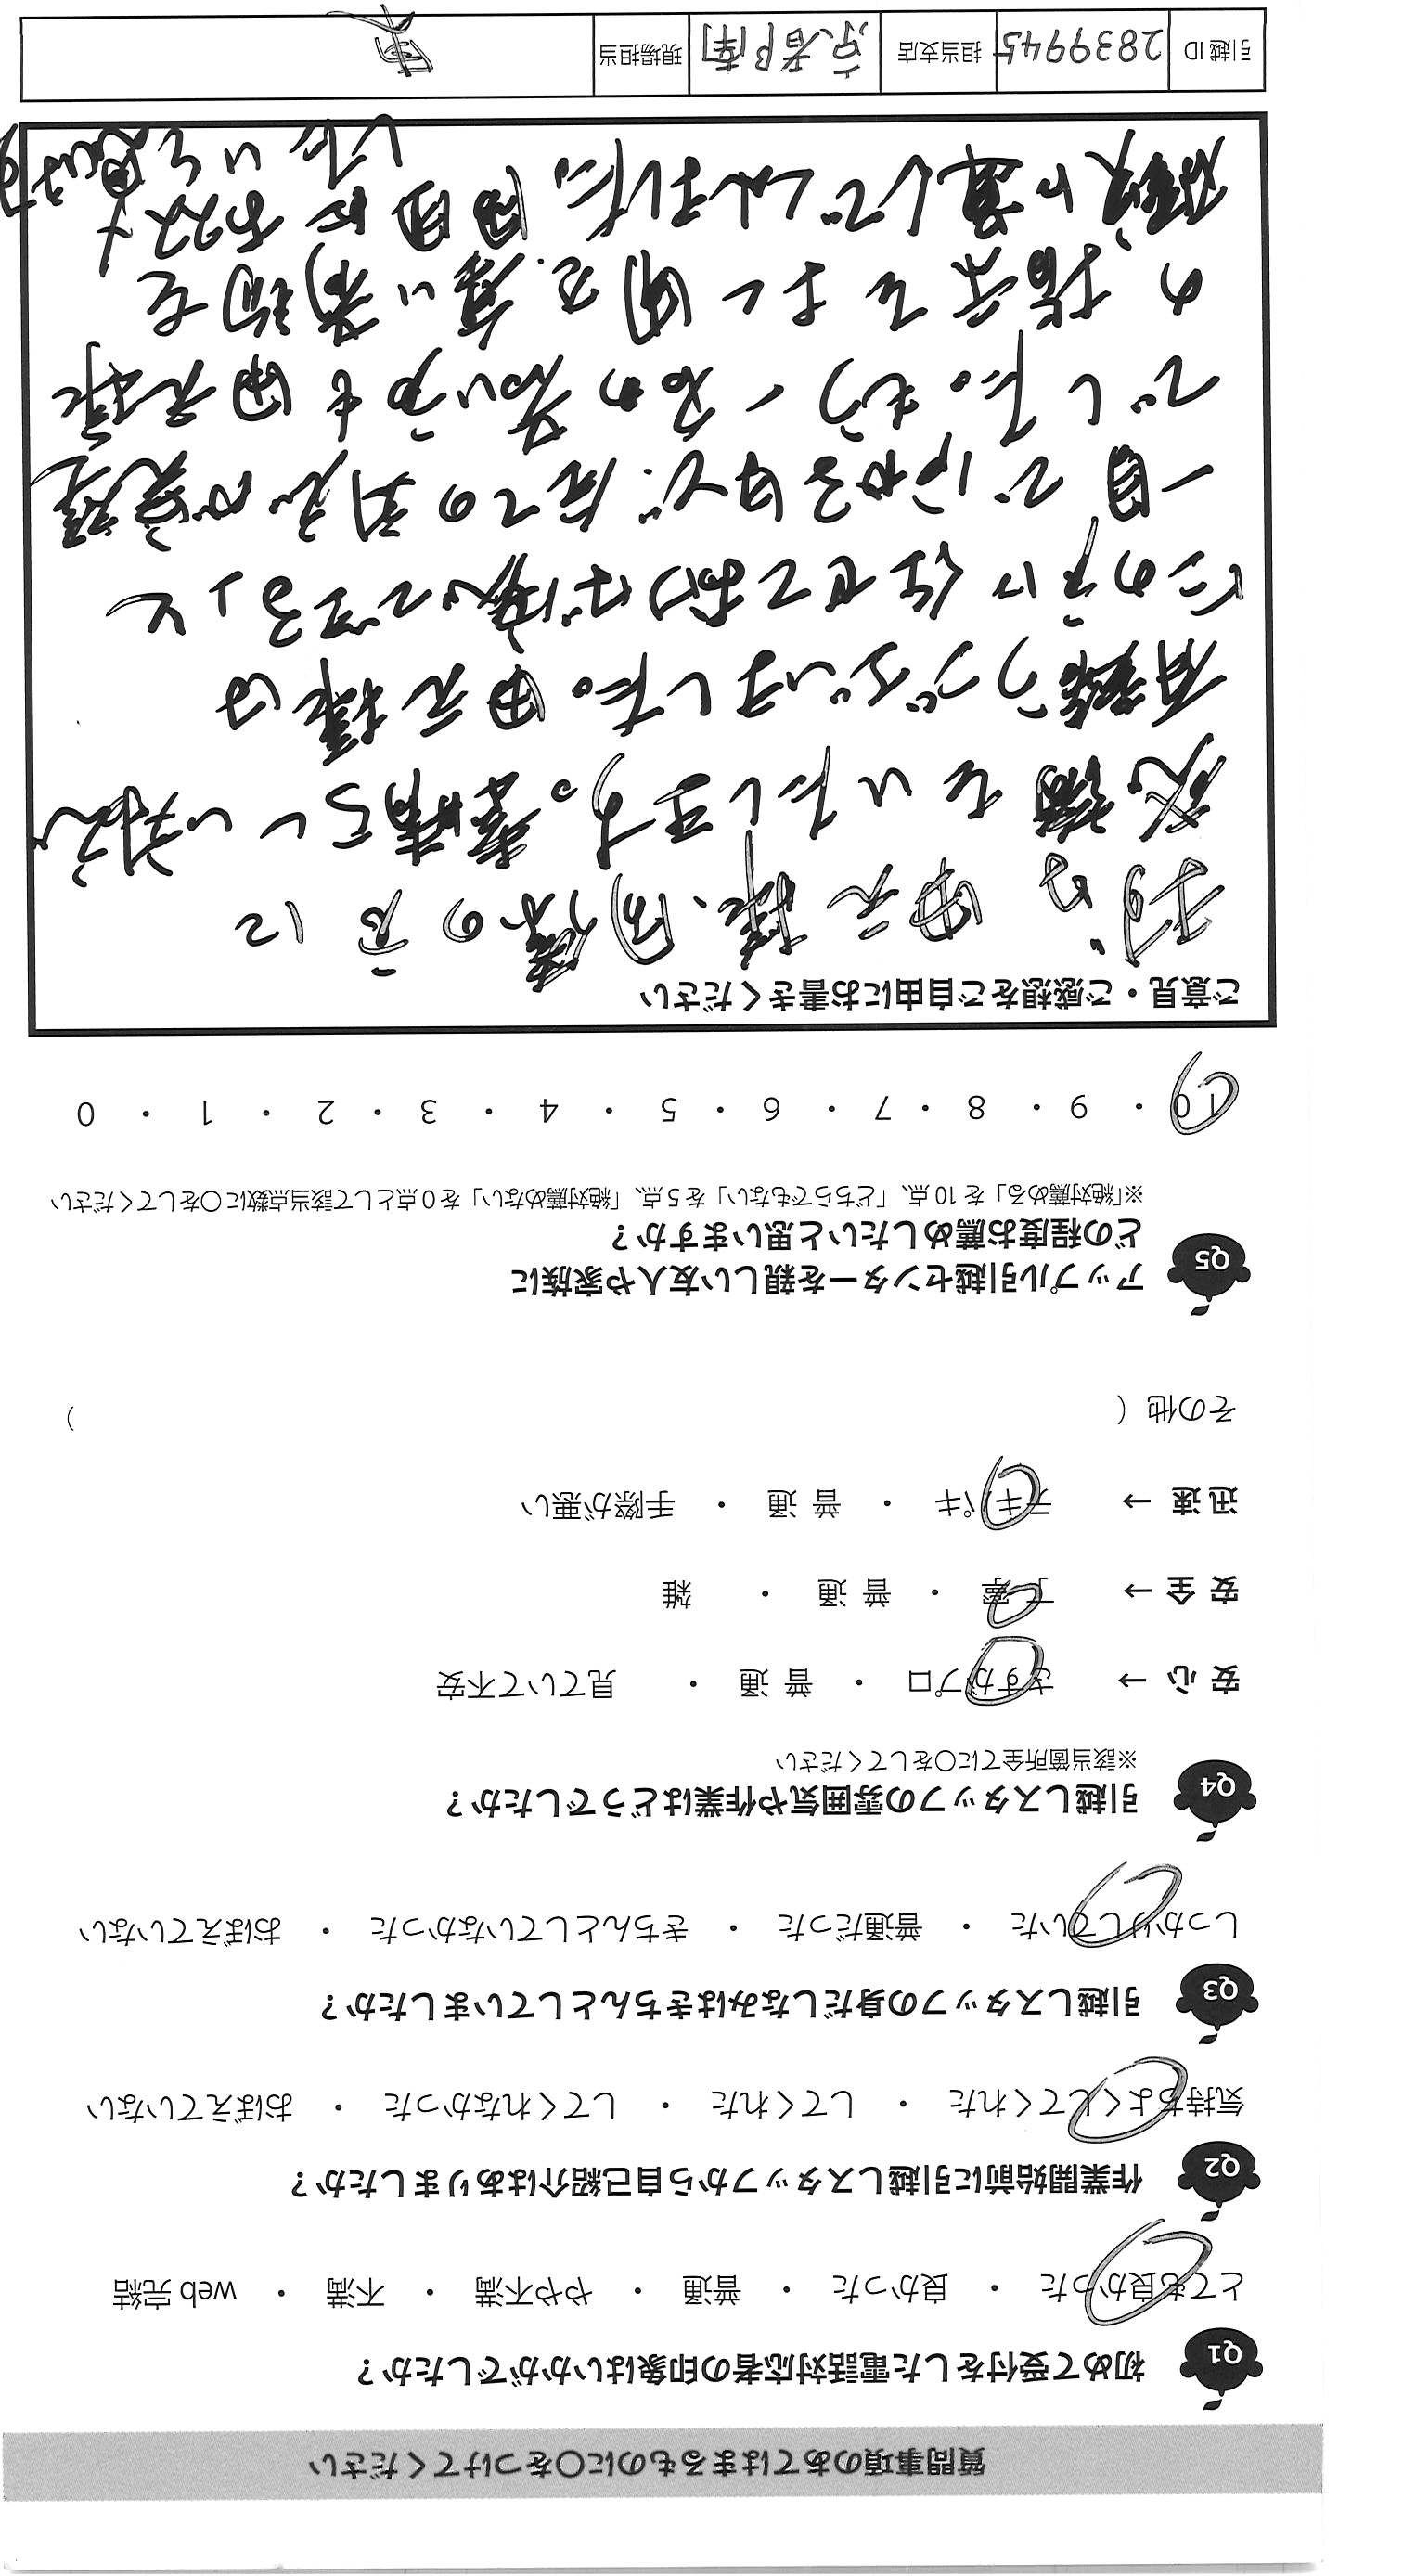 質問事項のあてはまるものに〇をつけてください
Q1 初めて受付をした電話対応者の印象はいかがでしたか？
とても良かった ・ 良かった ・ 普通 ・ やや不満 ・ 不満 ・ web 完結
Q2 作業開始前に引越しスタッフから自己紹介はありましたか？
気持ちよくしてくれた ・ してくれた ・ してくれなかった ・ おぼえていない
Q3 引越しスタッフの身だしなみはきちんとしていましたか？
しっかりしていた ・ 普通だった ・ きちんとしていなかった ・ おぼえていない
Q4 引越しスタッフの雰囲気や作業はどうでしたか？
※該当箇所全てに〇をしてください
安 心 → さすがプロ ・ 普 通 ・ 見ていて不安
安 全 → 丁 寧 ・ 普 通 ・ 雑
迅 速 → テキパキ ・ 普 通 ・ 手際が悪い
その他 （ ）
Q5 アップル引越センターを親しい友人や家族に
どの程度お薦めしたいと思いますか？
※「絶対薦める」を 10 点、「どちらでもない」を 5 点、「絶対薦めない」を 0 点として該当点数に〇をしてください
10 ・ 9 ・ 8 ・ 7 ・ 6 ・ 5 ・ 4 ・ 3 ・ 2 ・ 1 ・ 0
ご意見・ご感想をご自由にお書きください
様、同僚の方に
感謝をいたします。素晴らしい対応
有難うございました。 様は
この方に任せておけば 」と
一目で分かる 全ての
でした。もう一名の若い方も 様
の指示をよく聞き重い荷物を
に運んでくれました。 に
したいと思います
引越 ID 2839945 担当支店 京都南 現場担当